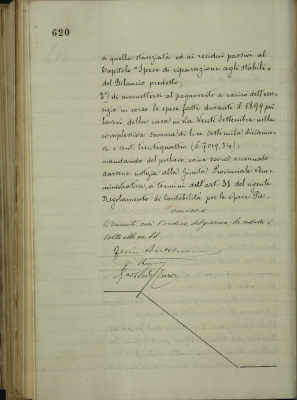 620
a quella stanziata ed ai residui passivi al
Capitolo "Spese di riparazione agli stabili"
del Bilancio predetto;
2°) di ammettersi al pagamento a carico dell'eser-
cizio in corso le spese fatte durante il 1899 pei
lavori della casa in Via Venti Settembre nella
complessiva somma di lire settemila diciano-
ve e cent. trentaquattro (£. 7019,34);
mandando del presente, come sovra
darsene notizia alla Giunta Provinciale Am-
ministrativa, a termini dell'art. 31 del vigente
Regolamento di Contabilità per le Opere Pie.
Esaurito così l'ordine del giorno, la seduta è
sciolta alle ore 11.